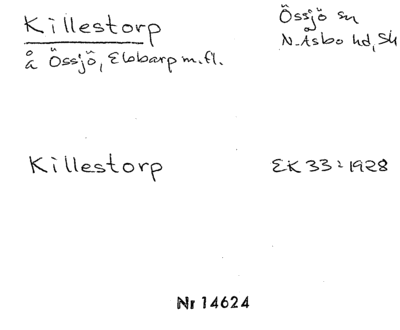 Killestorp
Össjö sn
N. Åsbo hd, Sk
å Össjö, Ebbarp m.fl.
Killestorp
EK 33 : 1928
Nr 14624